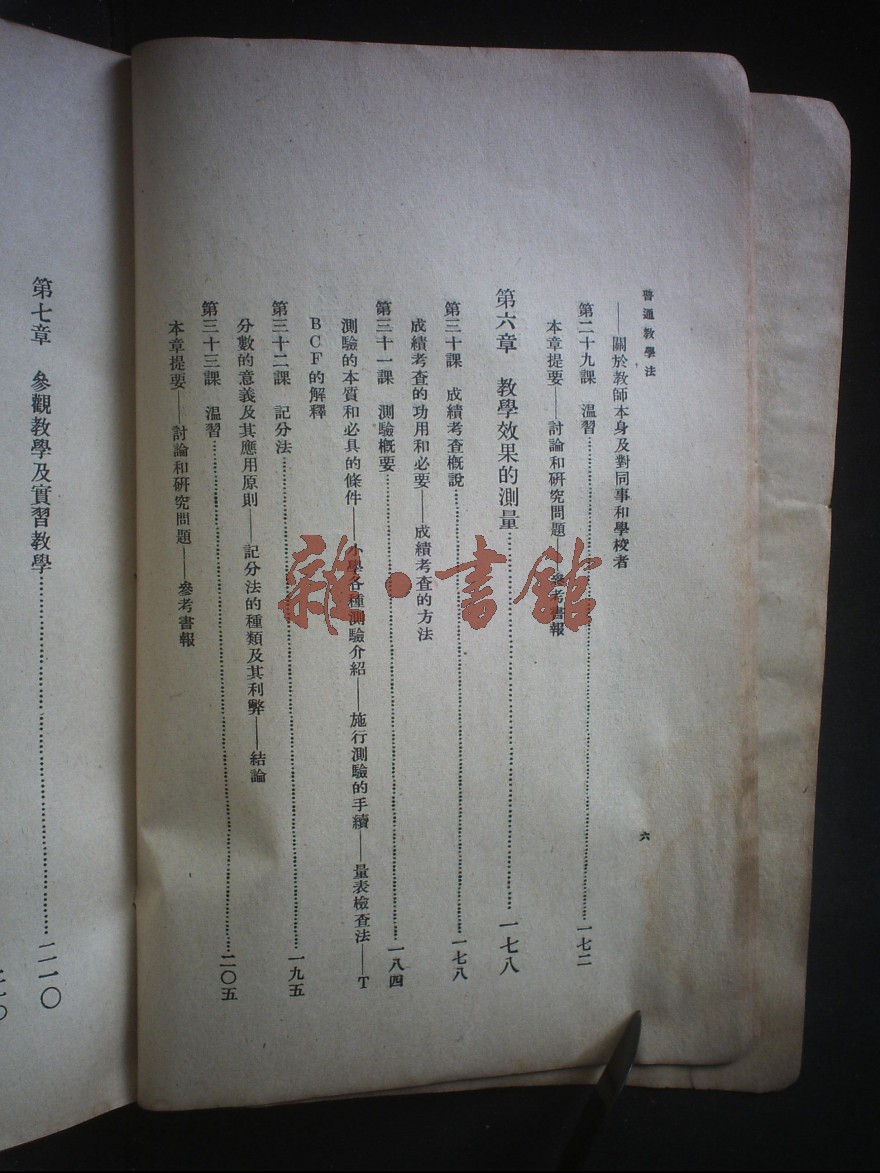 普通教學法
六
——關於教師本身及對同事和學校者
第二十九課 溫習……一七二
本章提要——討論和研究問題——參考書報
第六章 教學效果的測量……一七八
第三十課 成績考查概說……一七八
成績考查的功用和必要——成績考查的方法
第三十一課 測驗概要……一八四
測驗的本質和必具的條件——小學各種測驗介紹——施行測驗的手續——量表檢查法——T
BCF的解釋
第三十二課 記分法……一九五
分數的意義及其應用原則——記分法的種類及其利弊——結論
第三十三課 溫習……二〇五
本章提要——討論和研究問題——參考書報
第七章 參觀教學及實習教學……二一〇
雜·書館